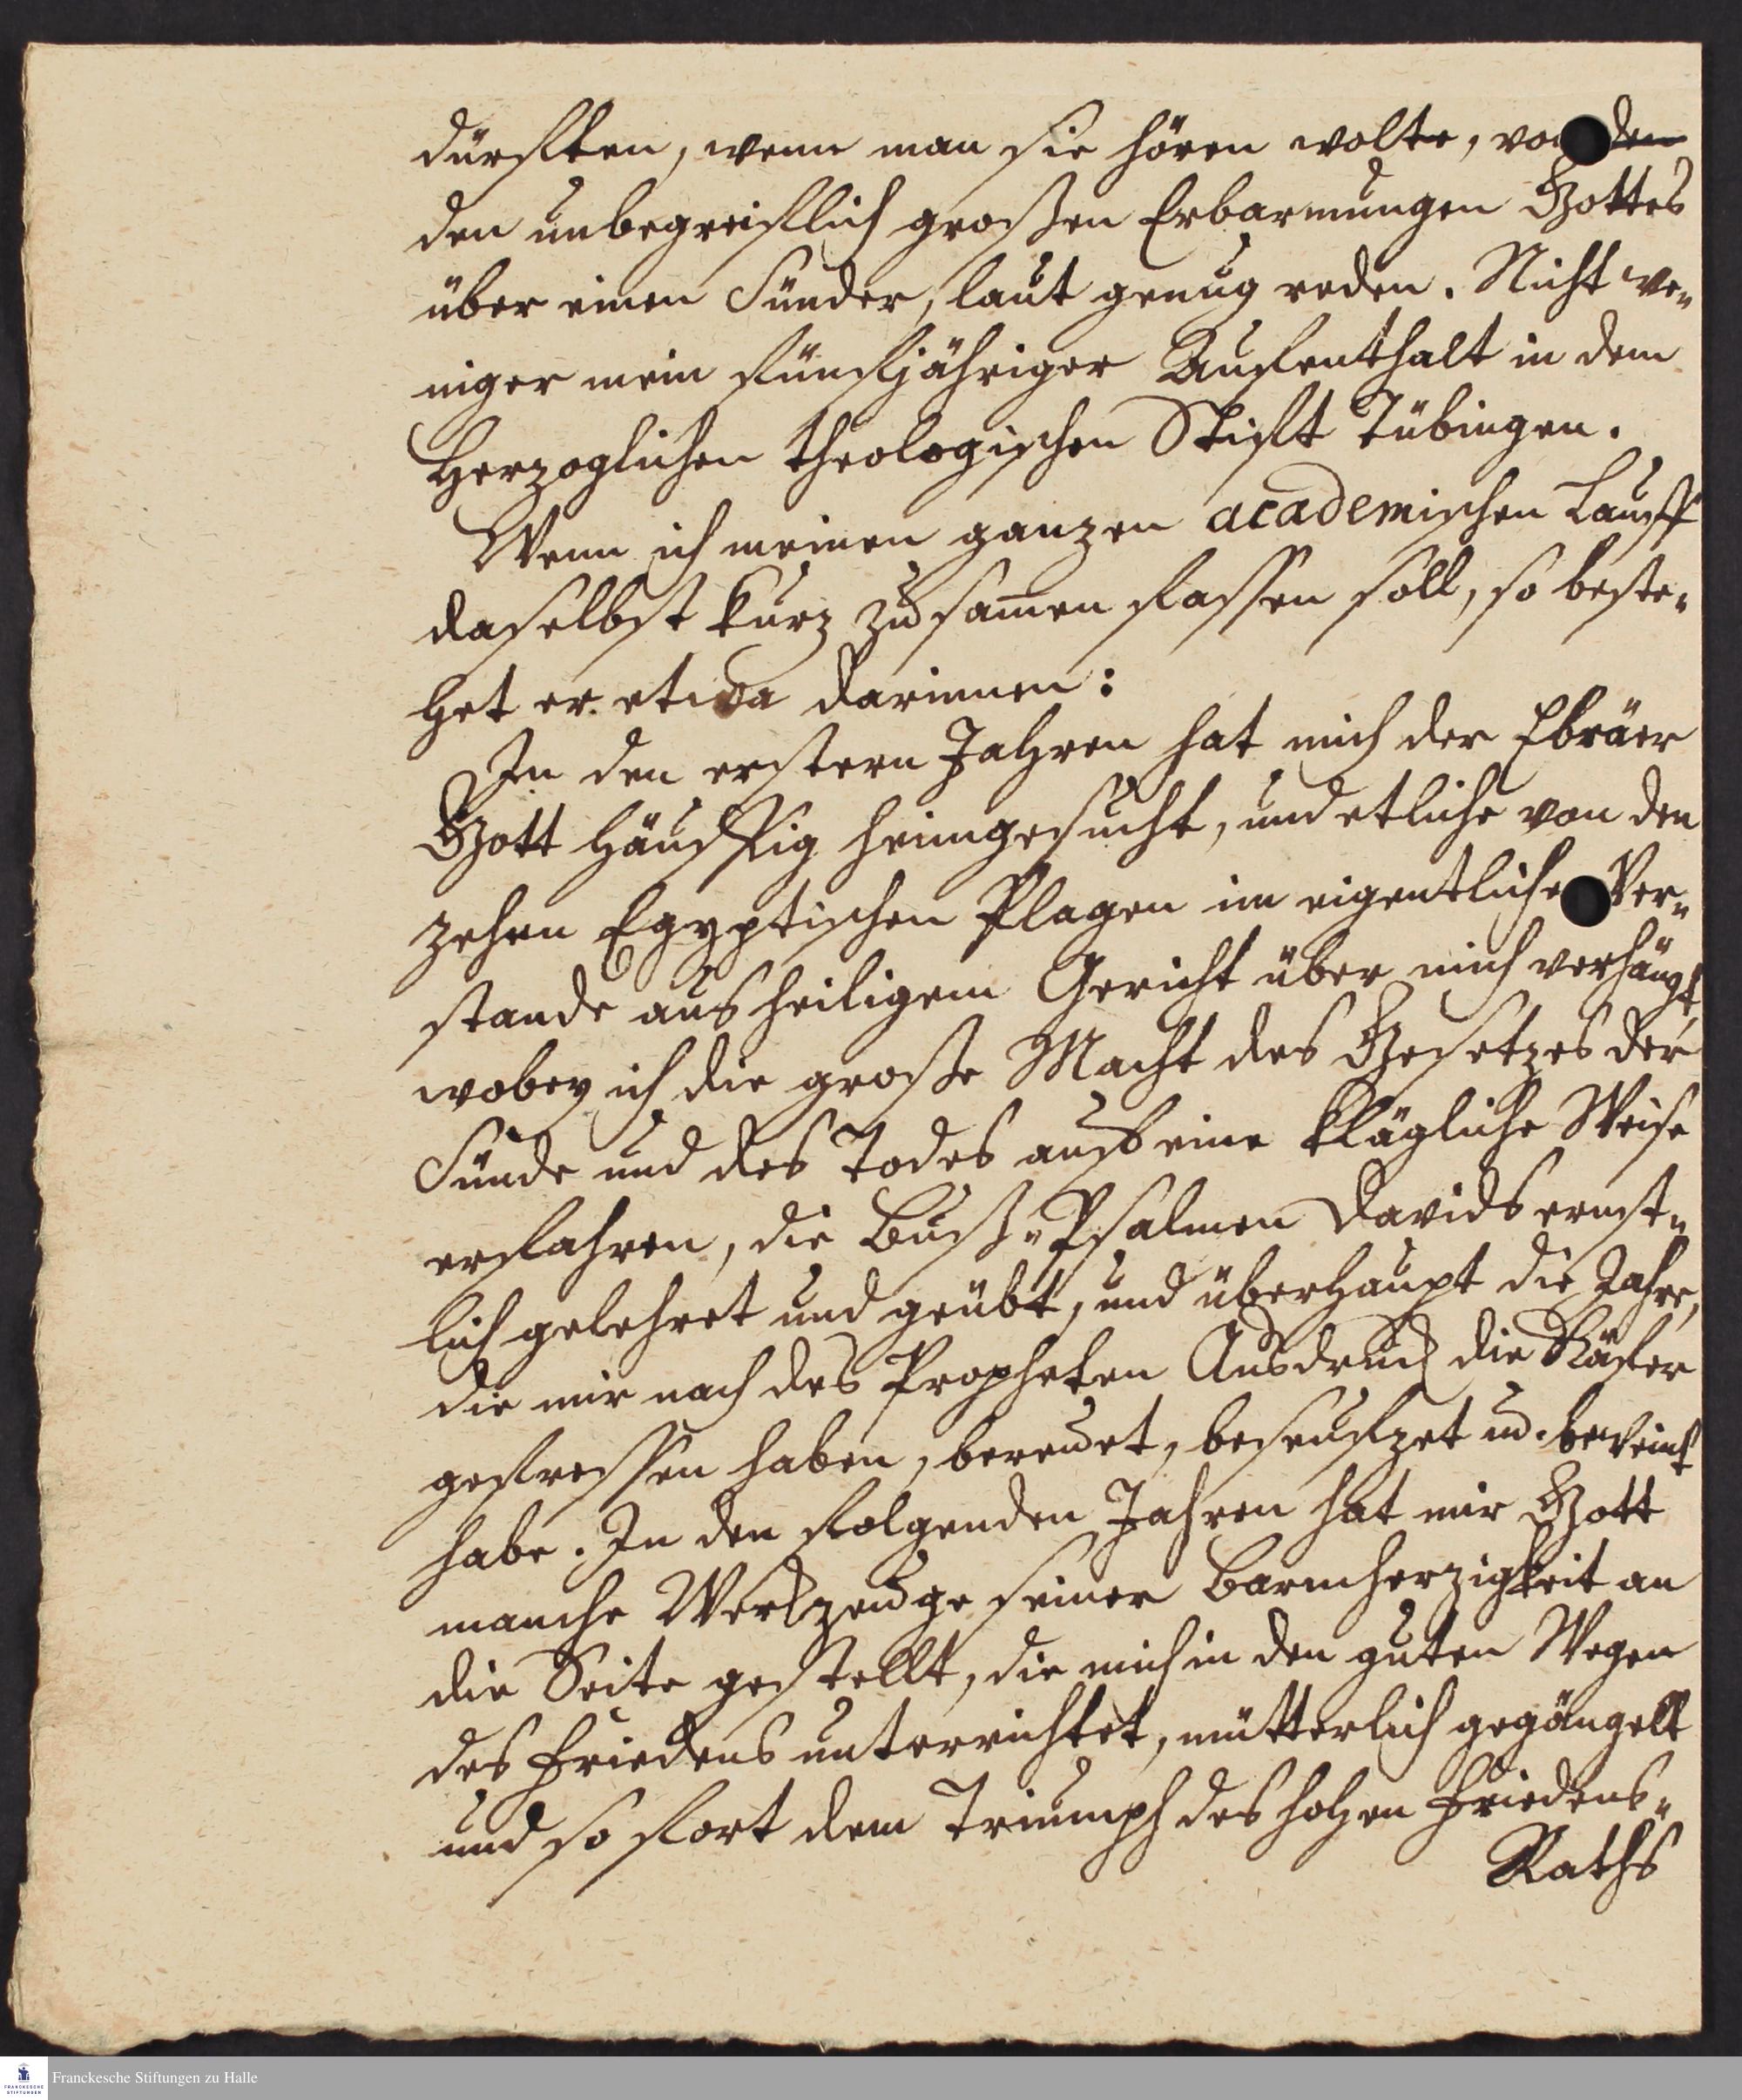 dürfften, wenn man sie hören wolte, von den
den unbegreifflich großen Erbarmungen Gottes
über einen Sünder, laut genug reden. Nicht we-
niger mein fünffjähriger Auffenthalt in dem
Herzoglichen theologischen Stifft Tübingen.
Wenn ich meinen ganzen academischen Lauff
daselbst kurz zusamen fassen soll, so beste-
het er etwa darinnen:
In den erstern Jahren hat mich der Ebräer
Gott häuffig heimgesucht, und etliche von den
zehen Egyptischen Plagen im eigentlichen Ver-
stande aus heiligem Gericht über mich verhängt,
wobey ich die große Macht des Gesetzes der
Sünde und des Todes auf eine klägliche Weise
erfahren, die Buß-Psalmen Davids ernst-
lich gelehret und geübt, und überhaupt die Jahre,
die mir nach des Propheten Ausdruck die Käfer
gefressen haben, bereuet, beseufzet und. beweint
habe. In den folgenden Jahren hat mir Gott
manche Werkzeuge seiner Barmherzigkeit an
die Seite gestellt, die mich in den guten Wegen
des Friedens unterrichtet, mütterlich gegängelt
und so fort dem Triumph des hohen Friedens-
Raths
Franckesche Stiftungen zu Halle
FRANCKESCHE
STIFTUNGEN